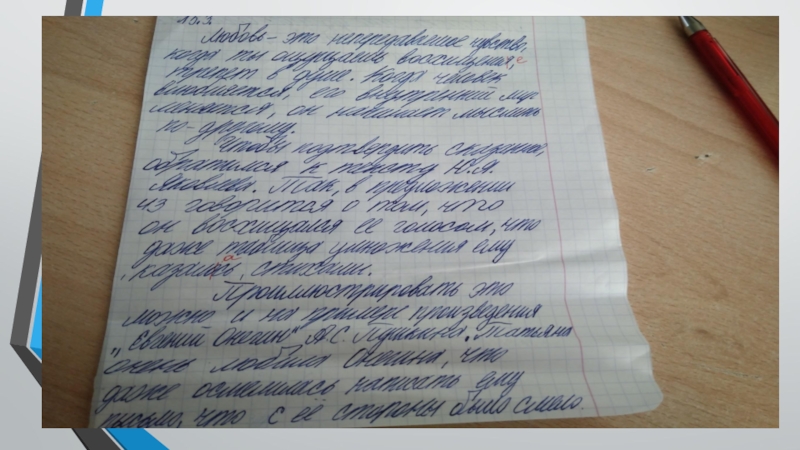 15.3
Любовь – это непередаваемое чувство,
когда ты ощущаешь восхищение,
трепет в душе. Когда человек
влюбляется, его внутренний мир
меняется, он начинает мыслить
по-другому.
Чтобы подтвердить сказанное,
обратимся к тексту Ю.Я.
Яковлева. Так, в предложении
43 говорится о том, что
он восхищался её голосом, что
даже таблица умножения ему
казалась, стихами.
Проиллюстрировать это
можно и на примере произведения
„Евгений Онегин" А.С. Пушкина. Татьяна
очень любила Онегина, что
даже осмелилась написать ему
письмо, что с её стороны было смело.